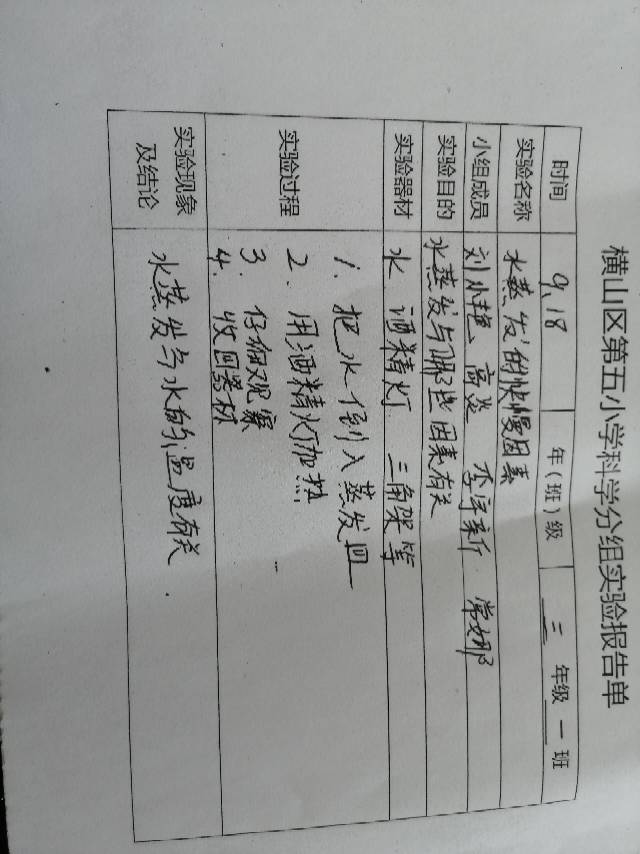 横山区第五小学科学分组实验报告单
时间 9.18 年(班)级 三 年级 一 班
实验名称 水蒸发的快慢因素
小组成员 刘小艳 高炎 李宇新 常娜
实验目的 水蒸发与哪些因素有关
实验器材 水 酒精灯 三角架等
实验过程
1. 把水倒入蒸发皿
2. 用酒精灯加热
3. 仔细观察
4. 收回器材
实验现象及结论 水蒸发与水的温度有关.